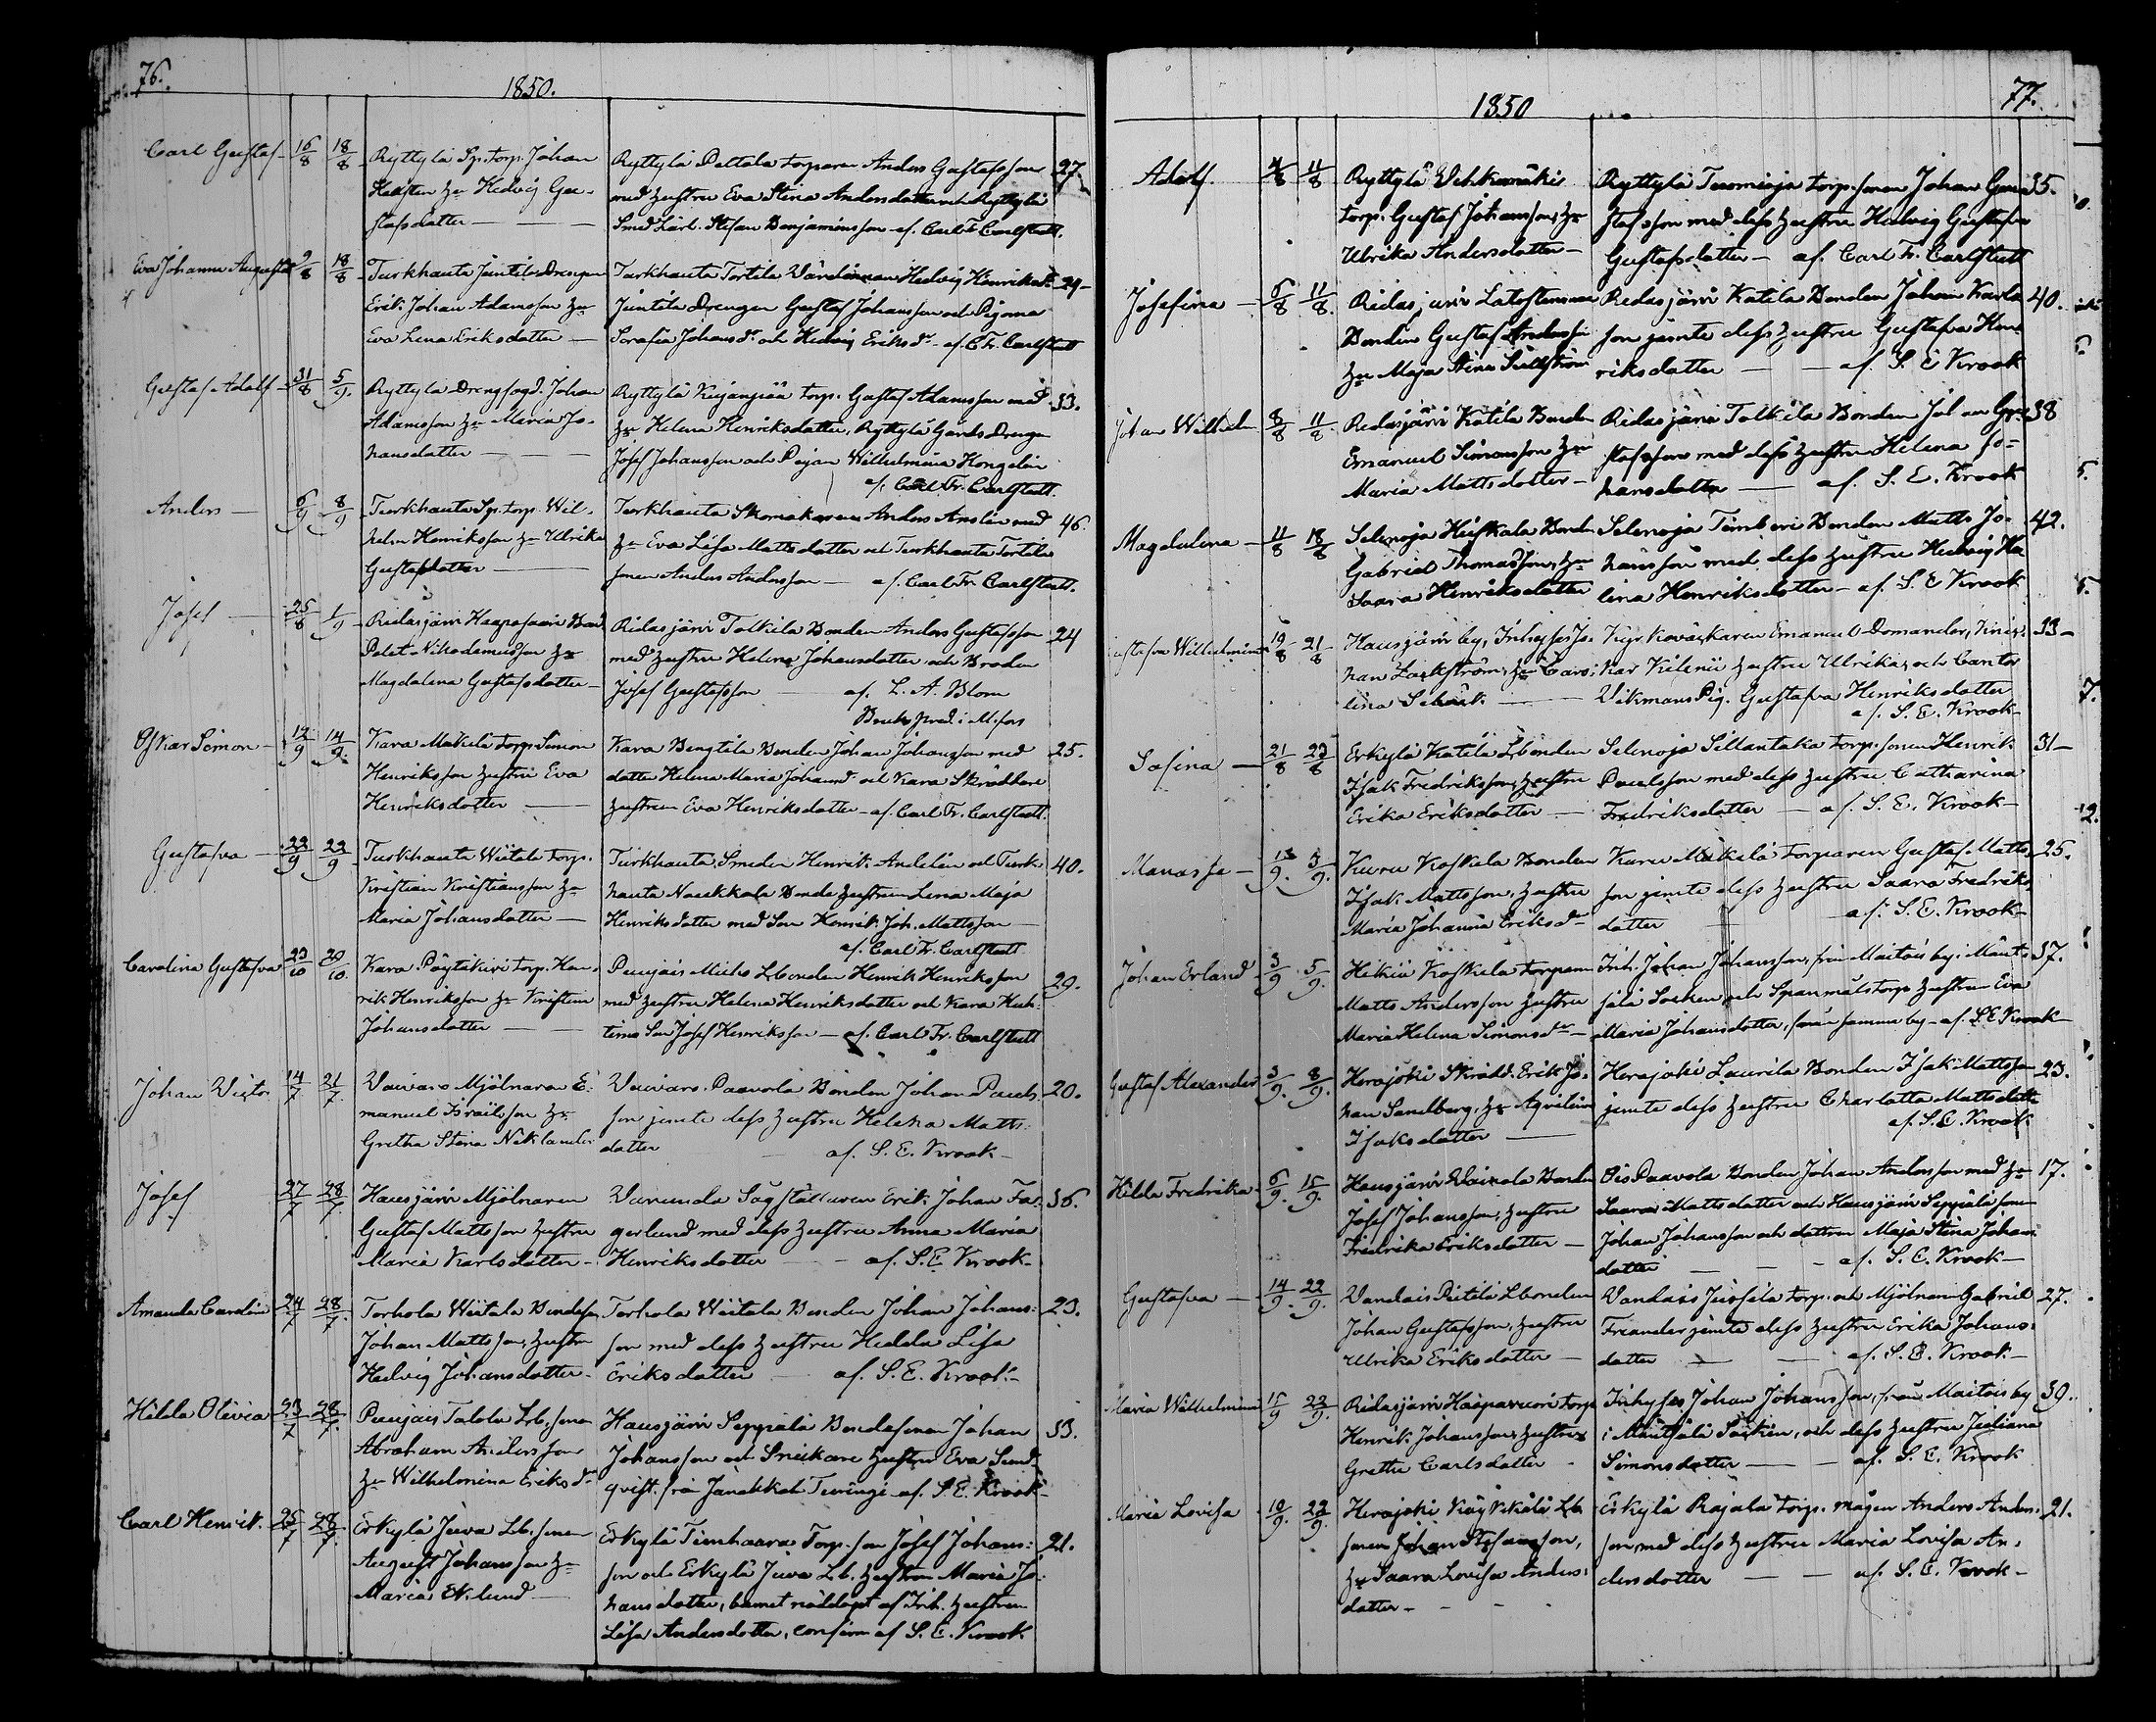 76.
1850.
Carl Gustaf 16/8 18/8 Ryttylä Sp. torp. Johan
Hu Hedvig Gu-
stafsdotter
Ryttylä Peltola torparen Anders Gustafsson
med hustru Eva Stina Andersdotter och Ryttylä
Smed Lärl. Stefan Benjaminsson af. Carl Fr. Carlstedt. 27.
Eva Johanna Augusta 9/8 18/8 Turkhauta Juntila Drengen
Erik Johan Adamsson hu
Eva Lena Eriksdotter
Turkhauta Tortila Hedvig Henriksdr
Juntila Drengen Gustaf Johansson och Pigorna
Serafia Johansdr och Hedvig Eriksdr af. C. Fr. Carlstedt 24
Gustaf Adolf 31/8 5/9. Ryttylä Drengfogd. Johan
Adamsson hu Maria Jo-
hansdotter
Ryttylä torp. Gustaf Adamsson med
hu Helena Henriksdotter, Ryttylä Gårds Drengen
Josef Johansson och Pigan Wilhelmina
af. Carl Fr. Carlstedt. 33.
Anders 6/9 8/9 Turkhauta Sp. torp. Wil-
helm Henriksson hu Ulrika
Gustafsdotter
Turkhauta Skomakaren Anders med
hu Eva Lisa Mattsdotter och Turkhauta Tortila
sonen Anders Andersson af. Carl Fr. Carlstedt. 46.
Josef 25/8 1/9 Ridasjärvi Haapasaari
Nikodemusson hu
Magdalena Gustafsdotter
Ridasjärvi Tolkila Bonden Anders Gustafsson
med hustru Helena Johansdotter och Broden
Josef Gustafsson af. L. A. Blom
Bruks pred. i 24
Oskar Simon 12/9 14/9. Kara Mäkelä torp. Simon
Henriksson hustru Eva
Henriksdotter
Kara Bengtila Bonden Johan Johansson med
dotter Helena Maria Johansdr och Kara Skräddare
hustrun Eva Henriksdotter af. Carl Fr. Carlstedt. 25.
Gustafva 22/9 22/9 Turkhauta Wiitala torp.
Kristian Kristiansson hu
Maria Johansdotter
Turkhauta Smeden Henrik Andelin och Turk-
hauta Naukkala Bonde hustrun Lena Maja
Henriksdotter med Son Henrik Joh. Mattsson
af. Carl Fr. Carlstedt 40.
Carolina Gustafva 23/10 29/10. Kara Pöytäkivi torp. Hen-
rik Henriksson hu Kristina
Johansdotter
Punjais Lbonden Henrik Henriksson
med hustru Helena Henriksdotter och Kara Huh-
timo Son Josef Henriksson af. Carl Fr. Carlstedt 29.
Johan Victor 14/7 21/7. Mjölnaren E-
manuel Israelsson hu
Gretha Stina Niklander
Paavola Bonden Johan Pauls-
son jemte dess hustru Helena Matts-
dotter af. S. E. Krook 20.
Josef 27/7 28/7. Hausjärvi Mjölnaren
Gustaf Mattsson hustru
Maria Karlsdotter
Sågställaren Erik Johan Fa-
gerlund med dess hustru Anna Maria
Henriksdotter af. S. E. Krook 36.
Amanda Carolina 24/7 28/7. Torhola Wiitala Bondeson
Johan Mattsson, hustru
Hedvig Johansdotter
Torhola Wiitala Bonden Johan Johans-
son med dess hustru Hedda Lisa
Eriksdotter af. S. E. Krook 23.
Hilda Olivia 23/7 28/7. Punjais Talola Lb. sonen
Abraham Andersson
hu Wilhelmina Eriksdr
Hausjärvi Seppälä Bondesonen Johan
Johansson och Snickare hustru Eva Sund-
qvist från Janakkala Turingi af. S. E. Krook 33.
Carl Henrik. 25/7 28/7. Erkylä Juva Lb. sonen
August Johansson hu
Maria Eklund
Erkylä Torp. son Josef Johans-
son och Erkylä Juva Lb. hustrun Maria Jo-
hansdotter, barnet nöddöpt af Inh. hustrun
Lisa Andersdotter, confirm af S. E. Krook 21.
77.
1850
Adolf 4/8 11/8 Ryttylä
torp. Gustaf Johansson, hu
Ulrika Andersdotter
Ryttylä Tuomioja torp. sonen Johan Gu-
stafsson med dess hustru Hedvig Gustafva
Gustafsdotter af. Carl Fr. Carlstedt 35.
Josefina 6/8 11/8. Ridasjärvi Latostenmaa
Bonden Gustaf Andersson
hu Maja Stina
Ridasjärvi Katila Bonden Johan Karls-
son jemte dess hustru Gustafva Hen-
riksdotter af. S. E Krook 40.
Johan Wilhelm 8/8 11/8. Ridasjärvi Katila Bonden
Emanuel Simonsson hu
Maria Mattsdotter
Ridasjärvi Tolkila Bonden Johan Gu-
stafsson med dess hustru Helena Jo-
hansdotter af. S. E. Krook 38
Magdalena 11/8 18/8 Selenoja Huskala Bonden
Gabriel Thomasson, hu
Saara Henriksdotter
Selenoja Timberi Bonden Matts Jo-
hansson med dess hustru Hedvig He-
lina Henriksdotter af. S. E Krook 42.
Gustafva Wilhelmina 19/8 21/8 Hausjärvi by, Inhyses Jo-
han hu Caro-
lina
Kyrkovärkaren Emanuel
hustru Ulrika, och Cantor
Wikmans Pig. Gustafva Henriksdotter
af. S. E. Krook 33
Sofina 21/8 23/8 Erkylä Katila Lbonden
Isak Fredriksson, hustru
Erika Eriksdotter
Selenoja Sillantaka torp. sonen Henrik
Paulsson med dess hustru Catharina
Fredriksdotter af. S. E. Krook 31
Manasse 13/9. 3/9. Kuru Koskela Bonden
Isak Mattsson, hustru
Maria Johanna Eriksdr
Kuru Mäkelä torparen Gustaf Matts-
son jemte dess hustru Saara Fredriks-
dotter af. S. E. Krook 25.
Johan Erland 3/9 5/9. Hikiä Koskela torparen
Matts Andersson hustru
Maria Helena Simonsdr
Inh. Johan Johansson, från Maitois by i Mänt-
sälä Socken, och Spannmålstorp. hustrun Eva
Maria Johansdotter, från samma by af. S. E Krook 37.
Gustaf Alexander 3/9. 8/9. Herajoki Skrädd. Erik Jo-
han Sandberg, hu Aqvilina
Isaksdotter
Herajoki Laurila Bonden Isak Mattsson
jemte dess hustru Charlotta Mattsdotter
af. S. E. Krook 23.
Hilda Fredrika 6/9. 15/9. Hausjärvi Bonden
Josef Johansson, hustru
Fredrika Eriksdotter
Ois Paavola Bonden Johan Andersson med hu
Saara Mattsdotter och Hausjärvi Seppälä sonen
Johan Johansson och dottren Maja Stina Johans-
dotter af. S. E. Krook 17.
Gustafva 14/9. 22/9. Vandais Pietilä Lbonden
Johan Gustafsson, hustru
Ulrika Eriksdotter
Vandais Jussila torp. och Mjölnaren Gabriel
Friander jemte dess hustru Erika Johans-
dotter af. S. E. Krook 27.
Maria Wilhelmina 15/9 22/9. Ridasjärvi Haapavuori torp.
Henrik Johansson, hustru
Gretha Carlsdotter
Inhyses Johan Johansson, från Maitois by
i Mäntsälä Socken, och dess hustru Juliana
Simonsdotter af. S. E. Krook 39.
Maria Lovisa 19/9. 22/9. Herajoki Käykkälä Lb.
sonen Johan Stefansson,
hu Saara Lovisa Anders-
dotter
Erkylä Rajala torp. mågen Anders Anders-
son med dess hustru Maria Lovisa An-
dersdotter af. S. E. Krook 21.